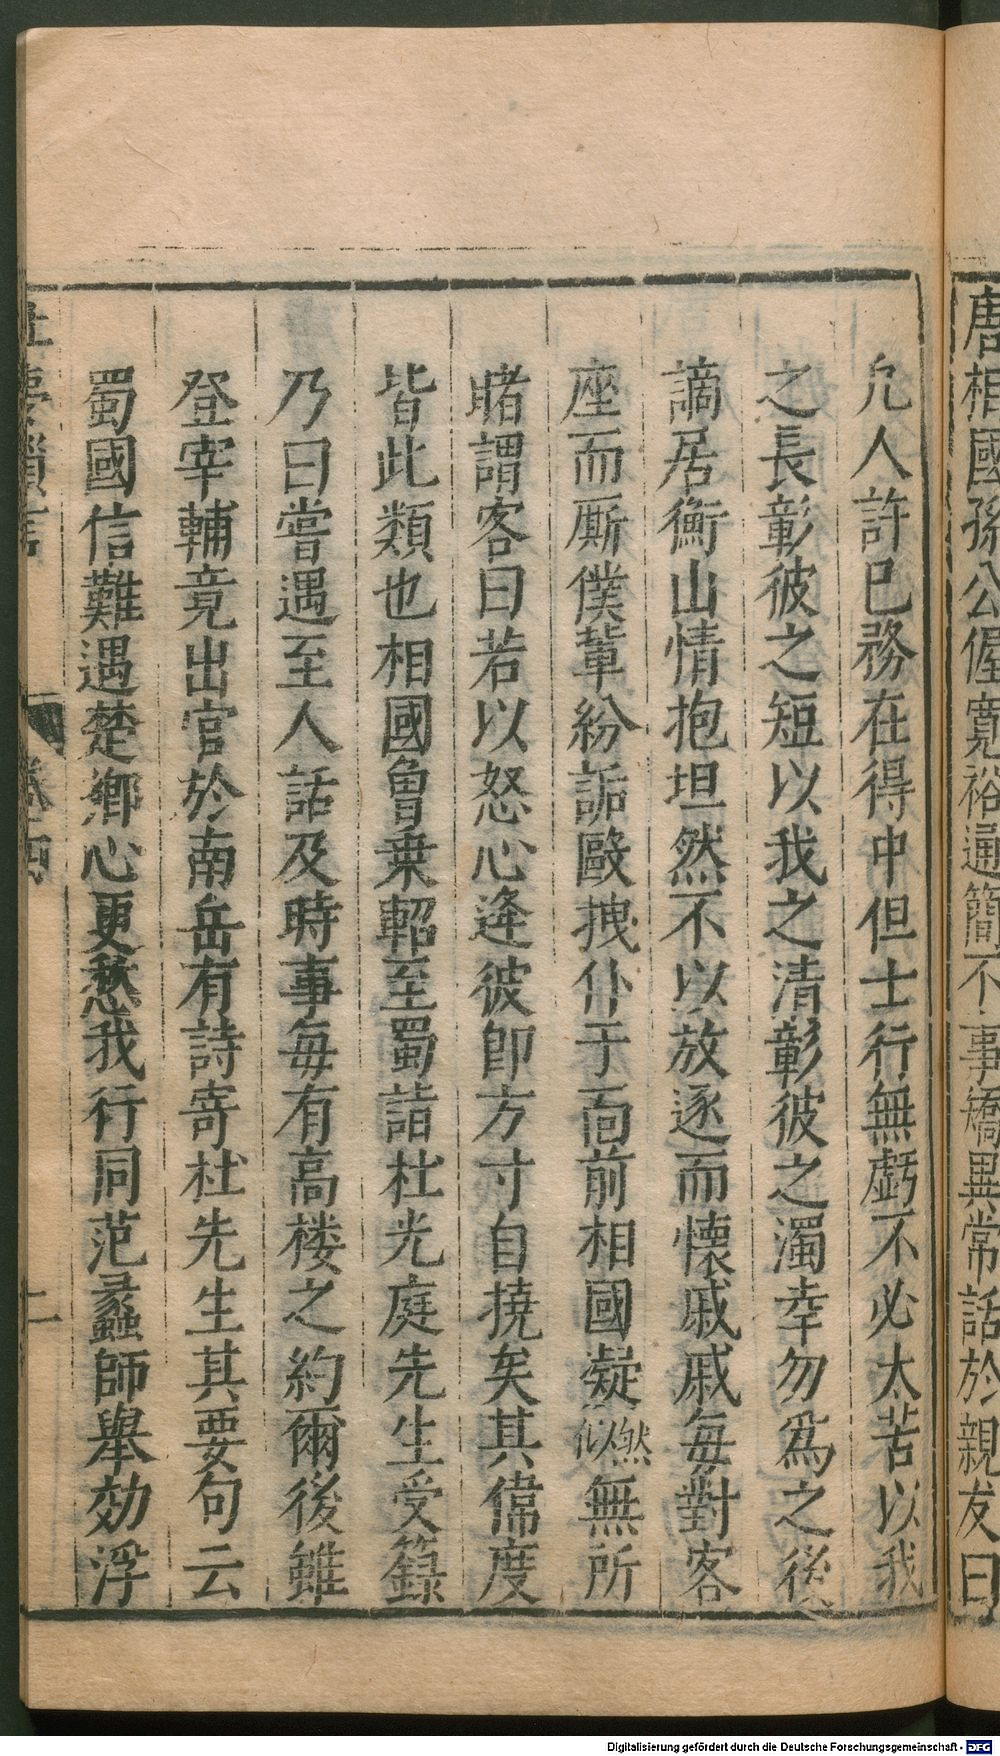 唐相國孫公偓寬裕通簡不事矯異常話於親友曰
凢人許已務在得中但士行無虧不必太苦以我
之長彰彼之短以我之清彰彼之濁幸勿爲之後
謫居衡山情抱坦然不以放逐而懷戚戚每對客
座而厮僕輩紛詬毆拽仆于面前相國凝然似無所
睹謂客曰若以怒心逢彼卽方寸自撓矣其偉度
皆此類也相國曾乗軺至蜀詣杜光庭先生受籙
乃曰嘗遇至人話及時事每有高楼之約爾後雖
登宰輔竟出官於南岳有詩寄杜先生其要句云
蜀國信難遇楚鄉心更愁我行同范蠡師舉効浮
夢瑣言
卷
二
Digitalisierung gefördert durch die Deutsche Forschungsgemeinschaft - DFG